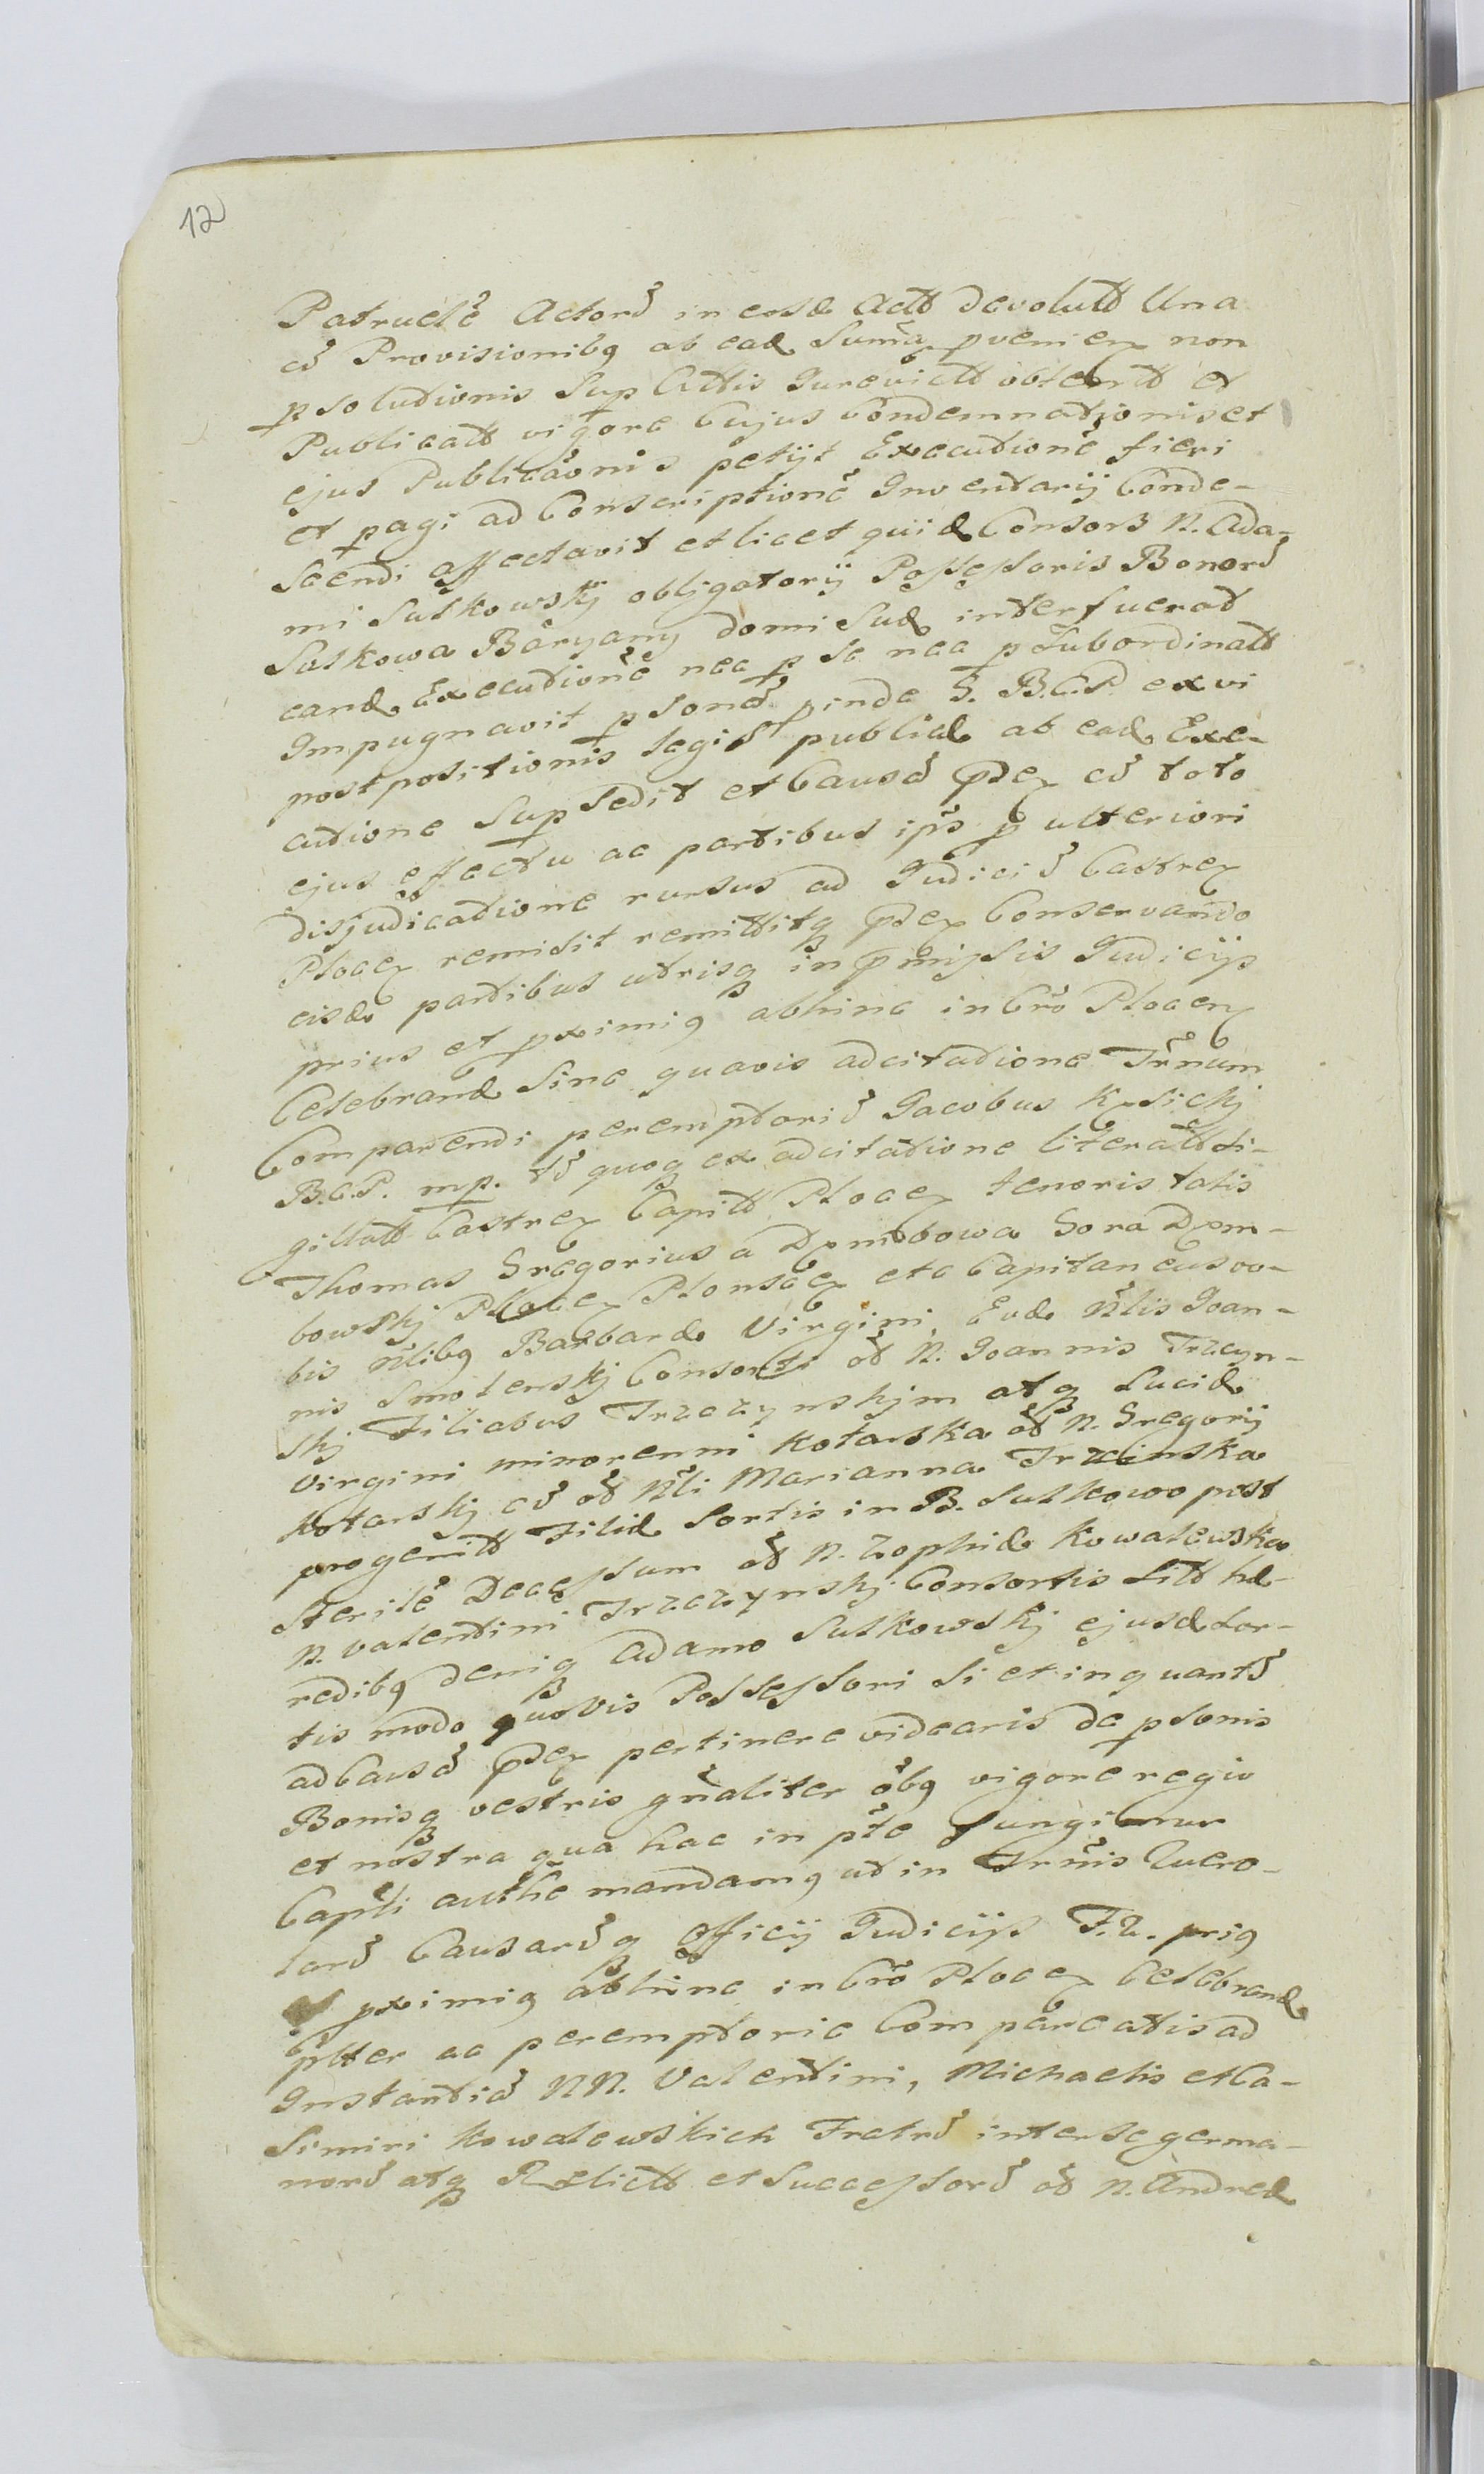 12
Patruelē Actorū in eosd. Actt devolutt Una
cū Provisionibq ab ead. Suma pvenien non
psolutionis Sup Actis Jurevictt obtentt et
Publicatt vigore Cujus Condemnationis et
ejus Publicaonis petijt Executionē fieri
et pagi ad Conscriptionē Inventarij Conde-
scendi affectavit et licet quid. Consors N. Ada-
mi Sułkowskij obligatorij Possessoris Bonorū
Sułkowa Baryany domi Suæ interfuerat
eand. Executionē nec p se nec p Subordinatt
Impugnavit psonā pinde G. B.C.P. ex vi
postpositionis legis publicæ ab ead. Exe-
cutione Sup Sedit et Causā pden cū toto
ejus effectu ac partibus ips p ulteriori
disjudicatione rursus ad Judiciū Castren
Plocen remisit remittitq pden Conservando
eisde partibus utrisq in pmissis Judicijs
prius et pximiq abhinc in Cro Plocen
Celebrand. Sine quavis adcitatione Trnum
Comparendi peremptoriū Jacobus Kęsickj
B.C.P. mp. tū quoq ex adcitatione literatt si-
gillatt Castren Capitt Plocen tenoris talis
Thomas Gregorius a Dęmbowa Gora Dęm-
bowskj Plocen Plonscen etc Capitaneus vo-
bis Nlibq Barbaræ Virgini, Evæ Nlis Joan-
nis Smolenskj Consorti oō N. Joannis Trzcyn-
skj Filiabus Trzczynskjm atq Luciæ
Virgini minorenni Kotarska oō N. Gregorij
Kotarskj cū oō Nli Marianna Trzcinska
progenitt Filiæ Sortis in B. Sułkowo post
Sterilē Decessum oō N. Zophiæ Kowalewska
N. Valentini Trzczynskj Consortis Sitt hæ-
redibq deniq Adamo Sułkowskj ejusd. Sor-
tis modo quovis Possessori Si et inquantū
ad Causā pden pertinere videaris de psonis
Bonisq vestris gnaliter obq vigore regio
et nostra qua hac in pte fungimur
Capli authe mandamq ut in Trnis Quero-
larū Causarūq Officij Judicijs F.Z. priq
et pximiq abhinc in Cro Plocen Celebrand.
plter ac peremptorie Compareatis ad
Instantiā NN. Valentini, Michaelis et Ca-
simiri Kowalewskich Fratrū inter se germa-
norū atq Relictt et Successorū oō N. Andreæ